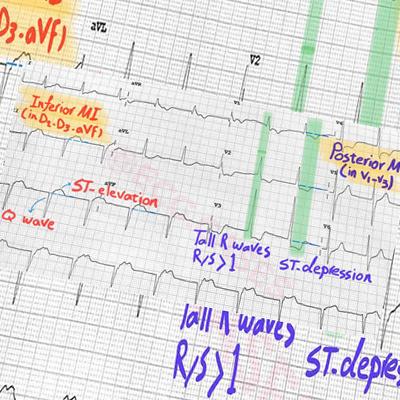 D3.aVf)
aVL
V2
Inferior MI
(in D2-D3-aVf)
aVL
V2
Posterior M
(in V1-V3)
ST-elevation
Q wave
aVF
V3
Tall R waves
R/S>1
ST.depression
Tall R waves
R/S>1
ST.depres